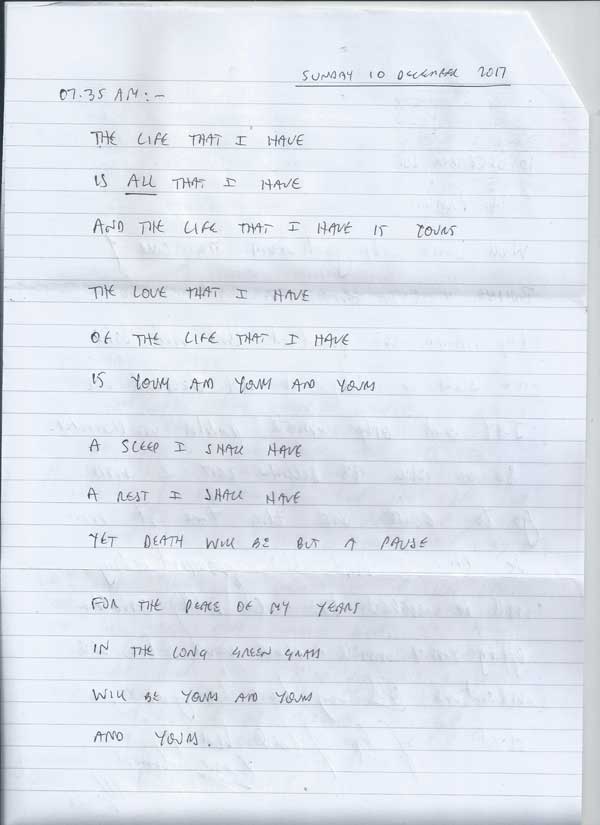 SUNDAY 10 DECEMBER 2017
07.35 AM:-
THE LIFE THAT I HAVE
IS ALL THAT I HAVE
AND THE LIFE THAT I HAVE IS YOURS
THE LOVE THAT I HAVE
OF THE LIFE THAT I HAVE
IS YOURS AND YOURS AND YOURS
A SLEEP I SHALL HAVE
A REST I SHALL HAVE
YET DEATH WILL BE BUT A PAUSE
FOR THE PEACE OF MY YEARS
IN THE LONG GREEN GRASS
WILL BE YOURS AND YOURS
AND YOURS.